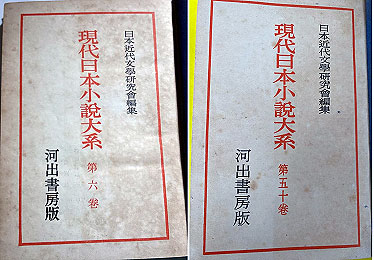 日本近代文學硏究會編集
現代日本小說大系
第六卷
河出書房版
日本近代文學硏究會編集
現代日本小說大系
第五十卷
河出書房版